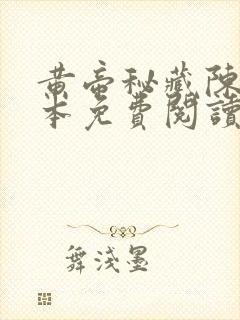 黄帝秘藏陳
本免費閱讀
舞淺墨